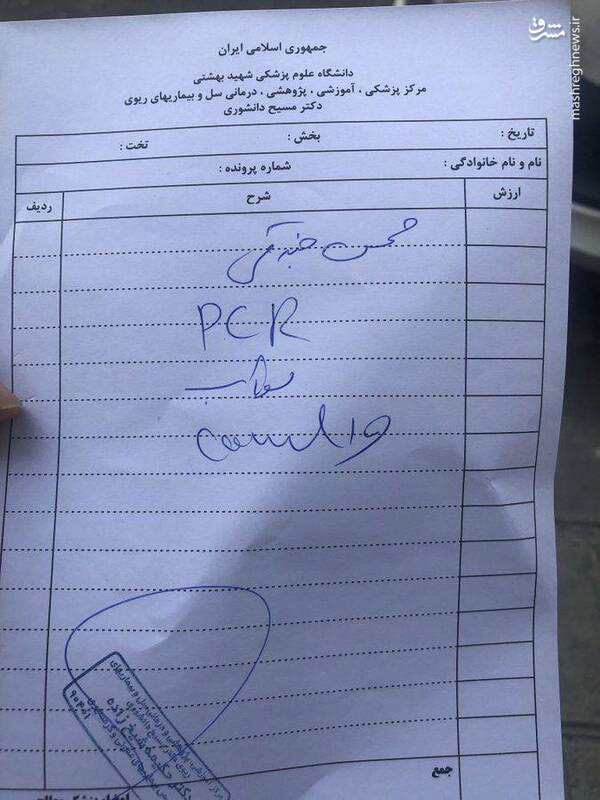 مشرق
mashreghnews.ir
جمهوری اسلامی ایران
دانشگاه علوم پزشکی شهید بهشتی
مرکز پزشکی ، آموزشی ، پژوهشی ، درمانی سل و بیماریهای ریوی
دکتر مسیح دانشوری
تاریخ : بخش : تخت :
نام و نام خانوادگی : شماره پرونده :
ارزش شرح ردیف
محسن
PCR
سواب
covid 19
جمع